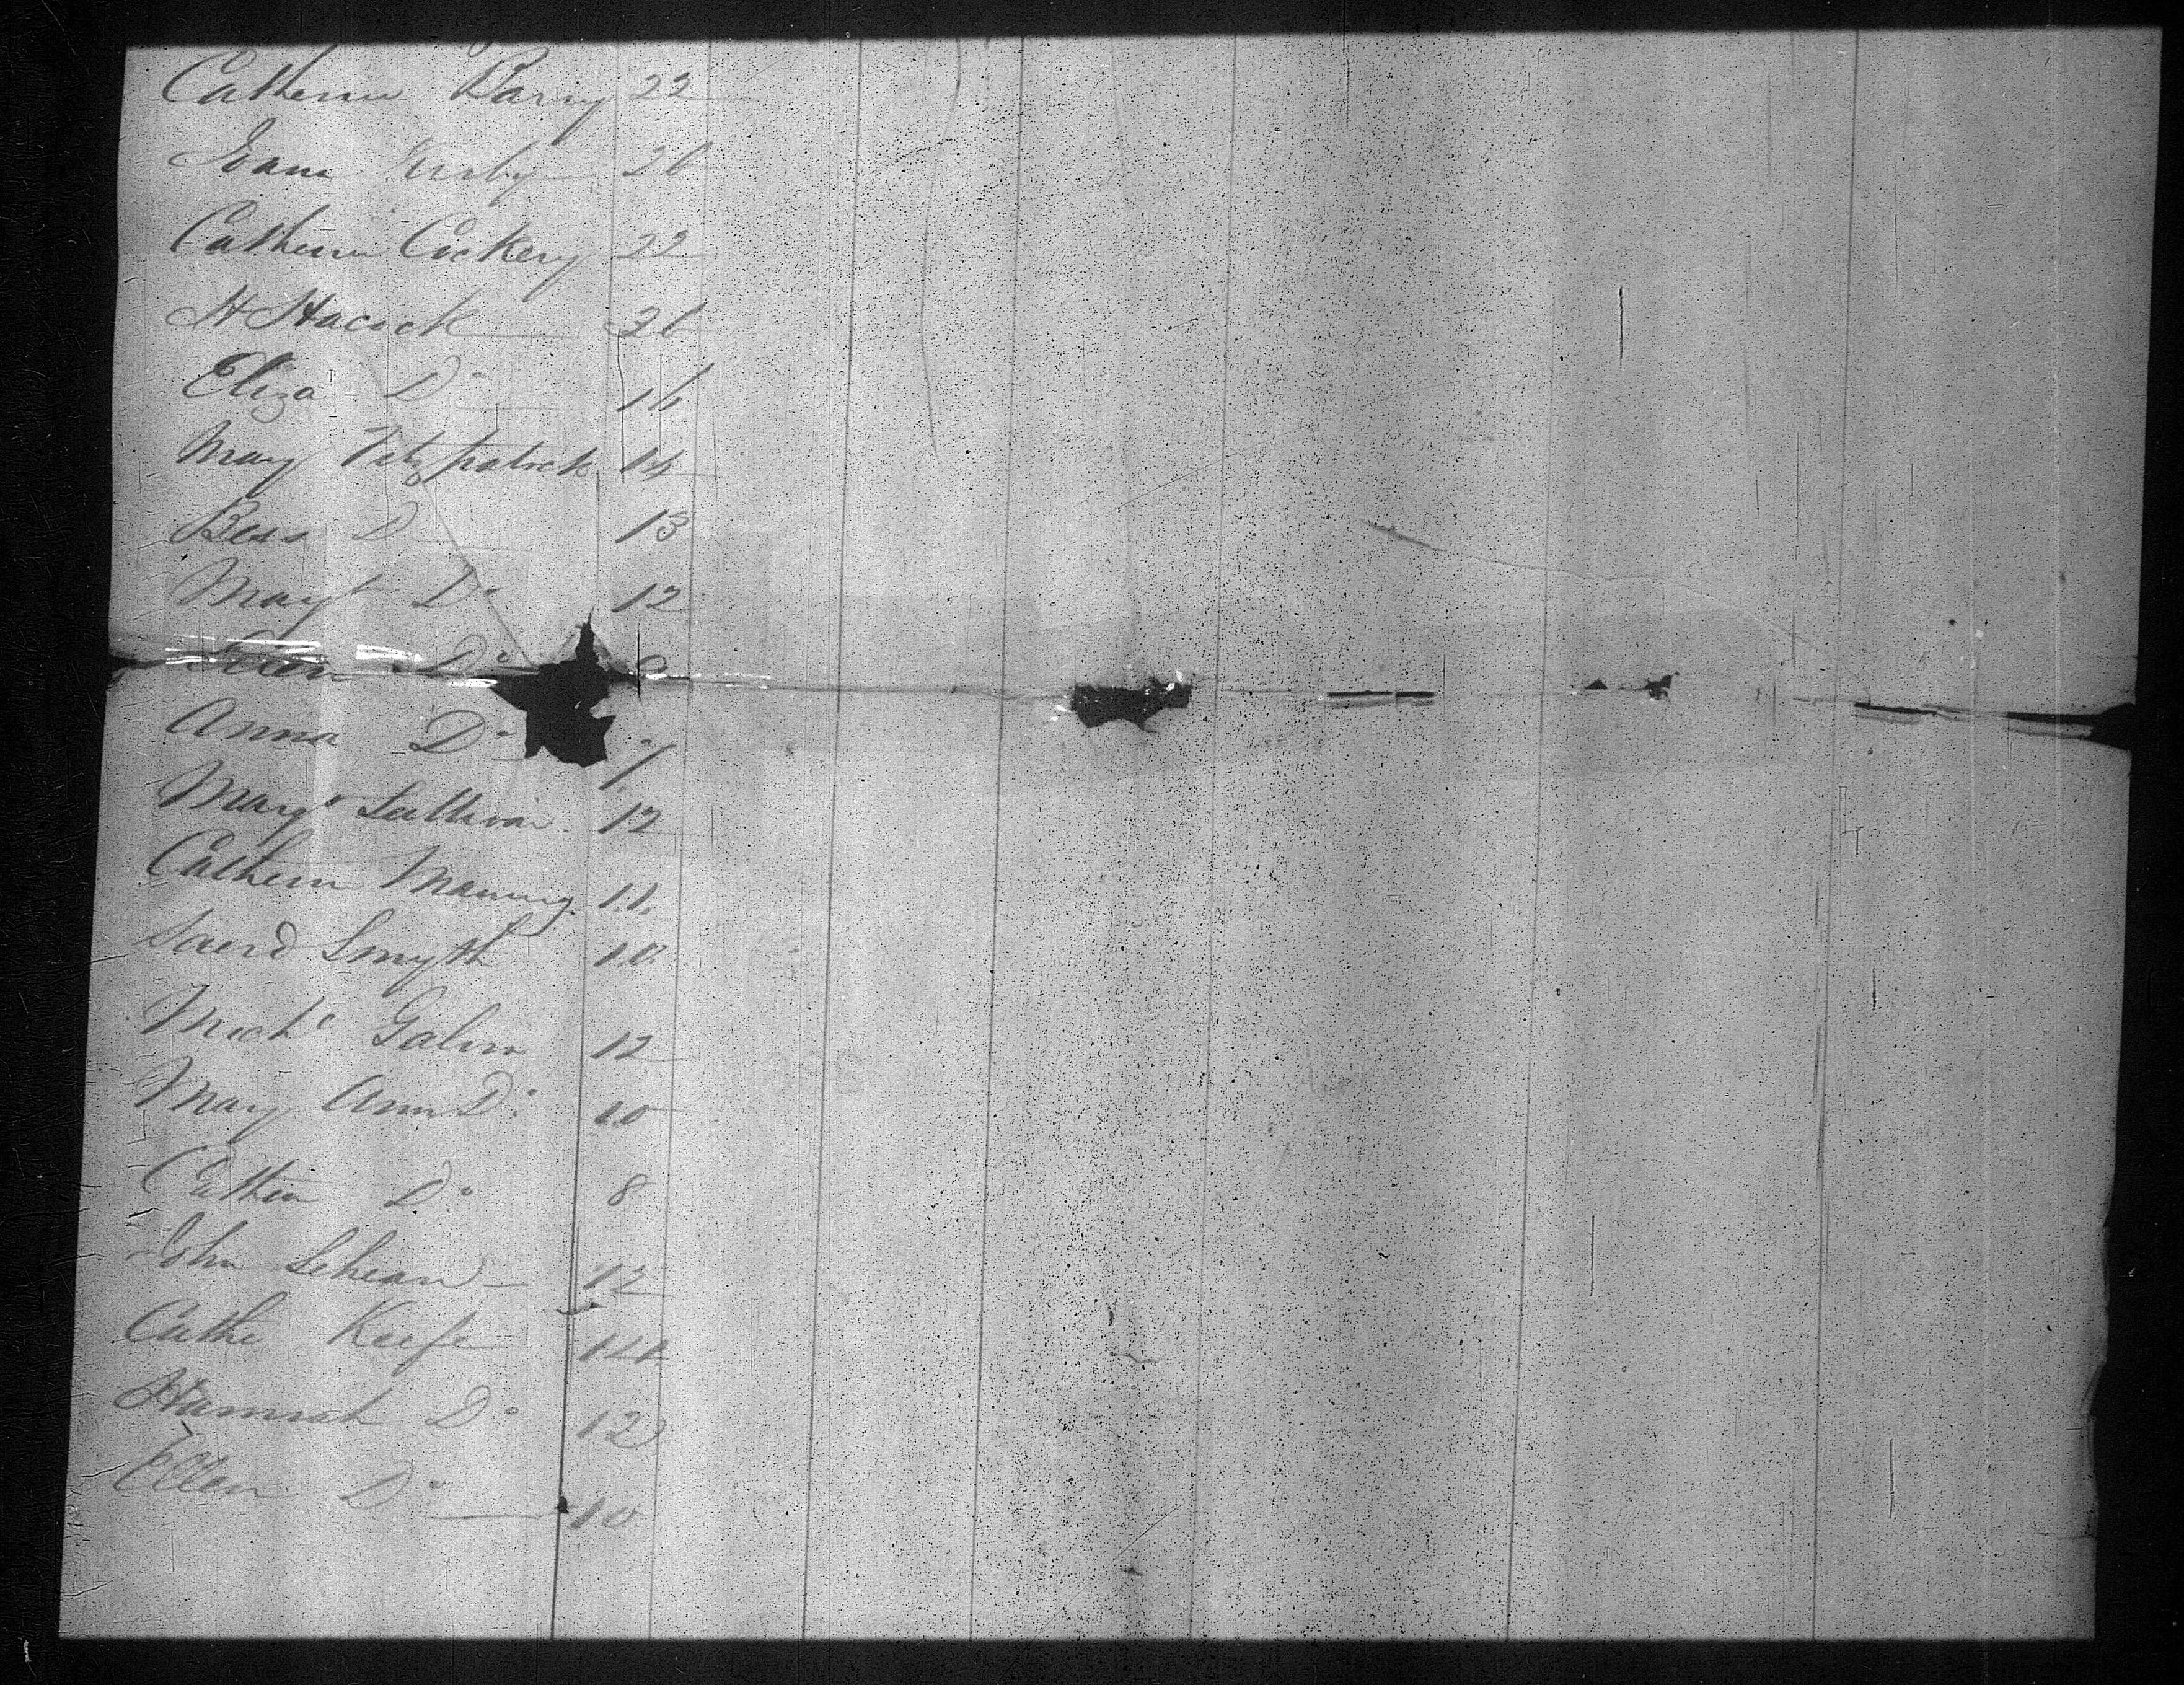 Catherine Barry 22
Kirby 26
Catherine Cockery 22
H Hacock 26
Eliza Do 16
Mary Fitzpatrick 14
Bess D 13
Margt Do 12
Ellen Do 9
Anna Do 7
Margt Sullivan 12
Catherin Manning 11
Smyth 10
Michl Galvin 12
Mary Ann Do 10
Cathen Do 8
John Sehean 12
Cathe Keefe 14
Hannah Do 12
Ellen Do 10